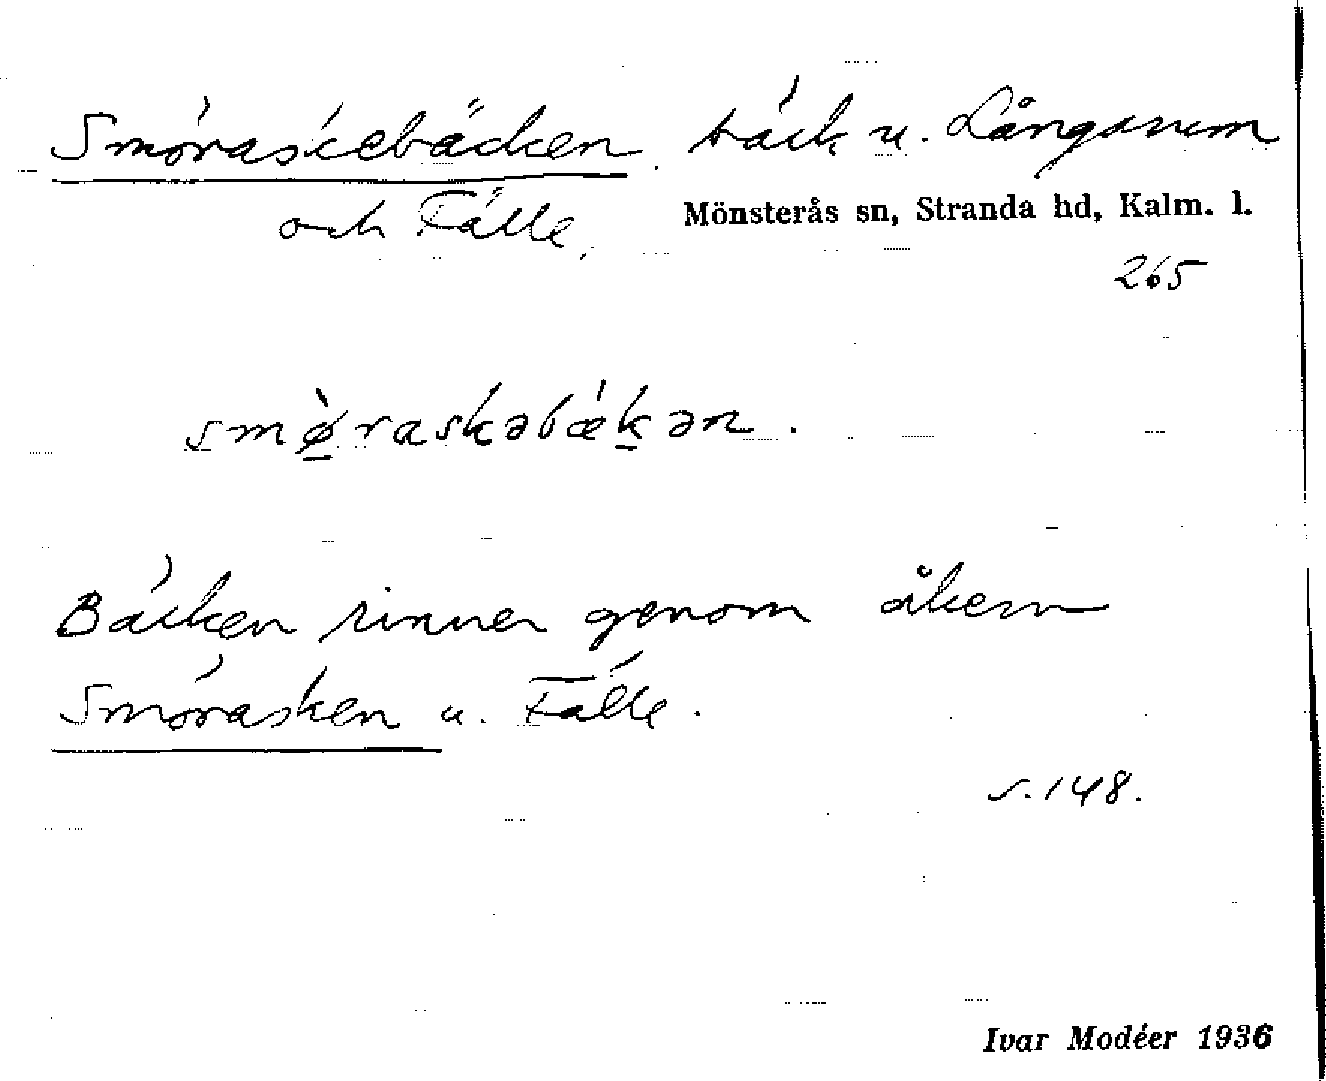 Smöraskebäcken. bäck u. Långanem
och Fälle.
Mönsterås sn, Stranda hd, Kalm. l.
265
smø̀raskəbǽkən.
Bäcken rinner genom åkern
Smörasken u. Fälle.
s. 148.
Ivar Modéer 1936